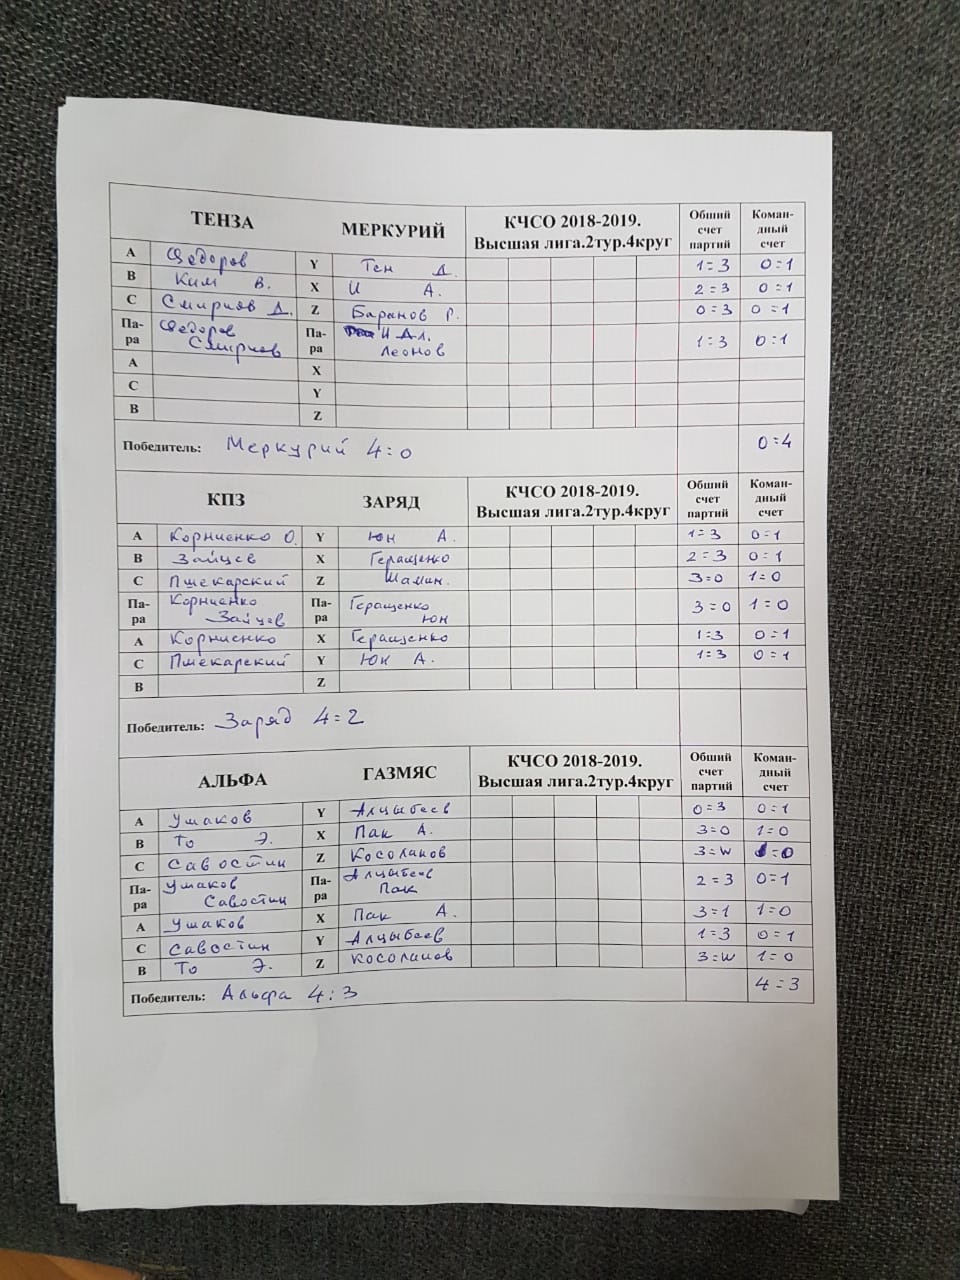 ТЕНЗА МЕРКУРИЙ КЧСО 2018-2019. Высшая лига.2тур.4круг Общий счет партий Коман-дный счет
A Федоров Y Тен Д. 1=3 0=1
B Ким В. X И А. 2=3 0=1
C Смирнов Д. Z Баранов Р. 0=3 0=1
Па-ра Федоров Смирнов Па-ра И Дл. Леонов 1=3 0=1
A X
C Y
B Z
Победитель: Меркурий 4=0 0=4
КПЗ ЗАРЯД КЧСО 2018-2019. Высшая лига.2тур.4круг Общий счет партий Коман-дный счет
A Корниенко О. Y Юн А. 1=3 0=1
B Зайцев X Геращенко 2=3 0=1
C Пшекарский Z Шамин. 3=0 1=0
Па-ра Корниенко Зайцев Па-ра Геращенко Юн 3=0 1=0
A Корниенко X Геращенко 1=3 0=1
C Пшекарский Y Юн А. 1=3 0=1
B Z
Победитель: Заряд 4=2
АЛЬФА ГАЗМЯС КЧСО 2018-2019. Высшая лига.2тур.4круг Общий счет партий Коман-дный счет
A Ушаков Y Алцыбеев 0=3 0=1
B То Э. X Пак А. 3=0 1=0
C Савостин Z Косолапов 3=W =0
Па-ра Ушаков Савостин Па-ра Алцыбеев Пак 2=3 0=1
A Ушаков X Пак А. 3=1 1=0
C Савостин Y Алцыбеев 1=3 0=1
B То Э. Z Косолапов 3=W 1=0
Победитель: Альфа 4:3 4=3